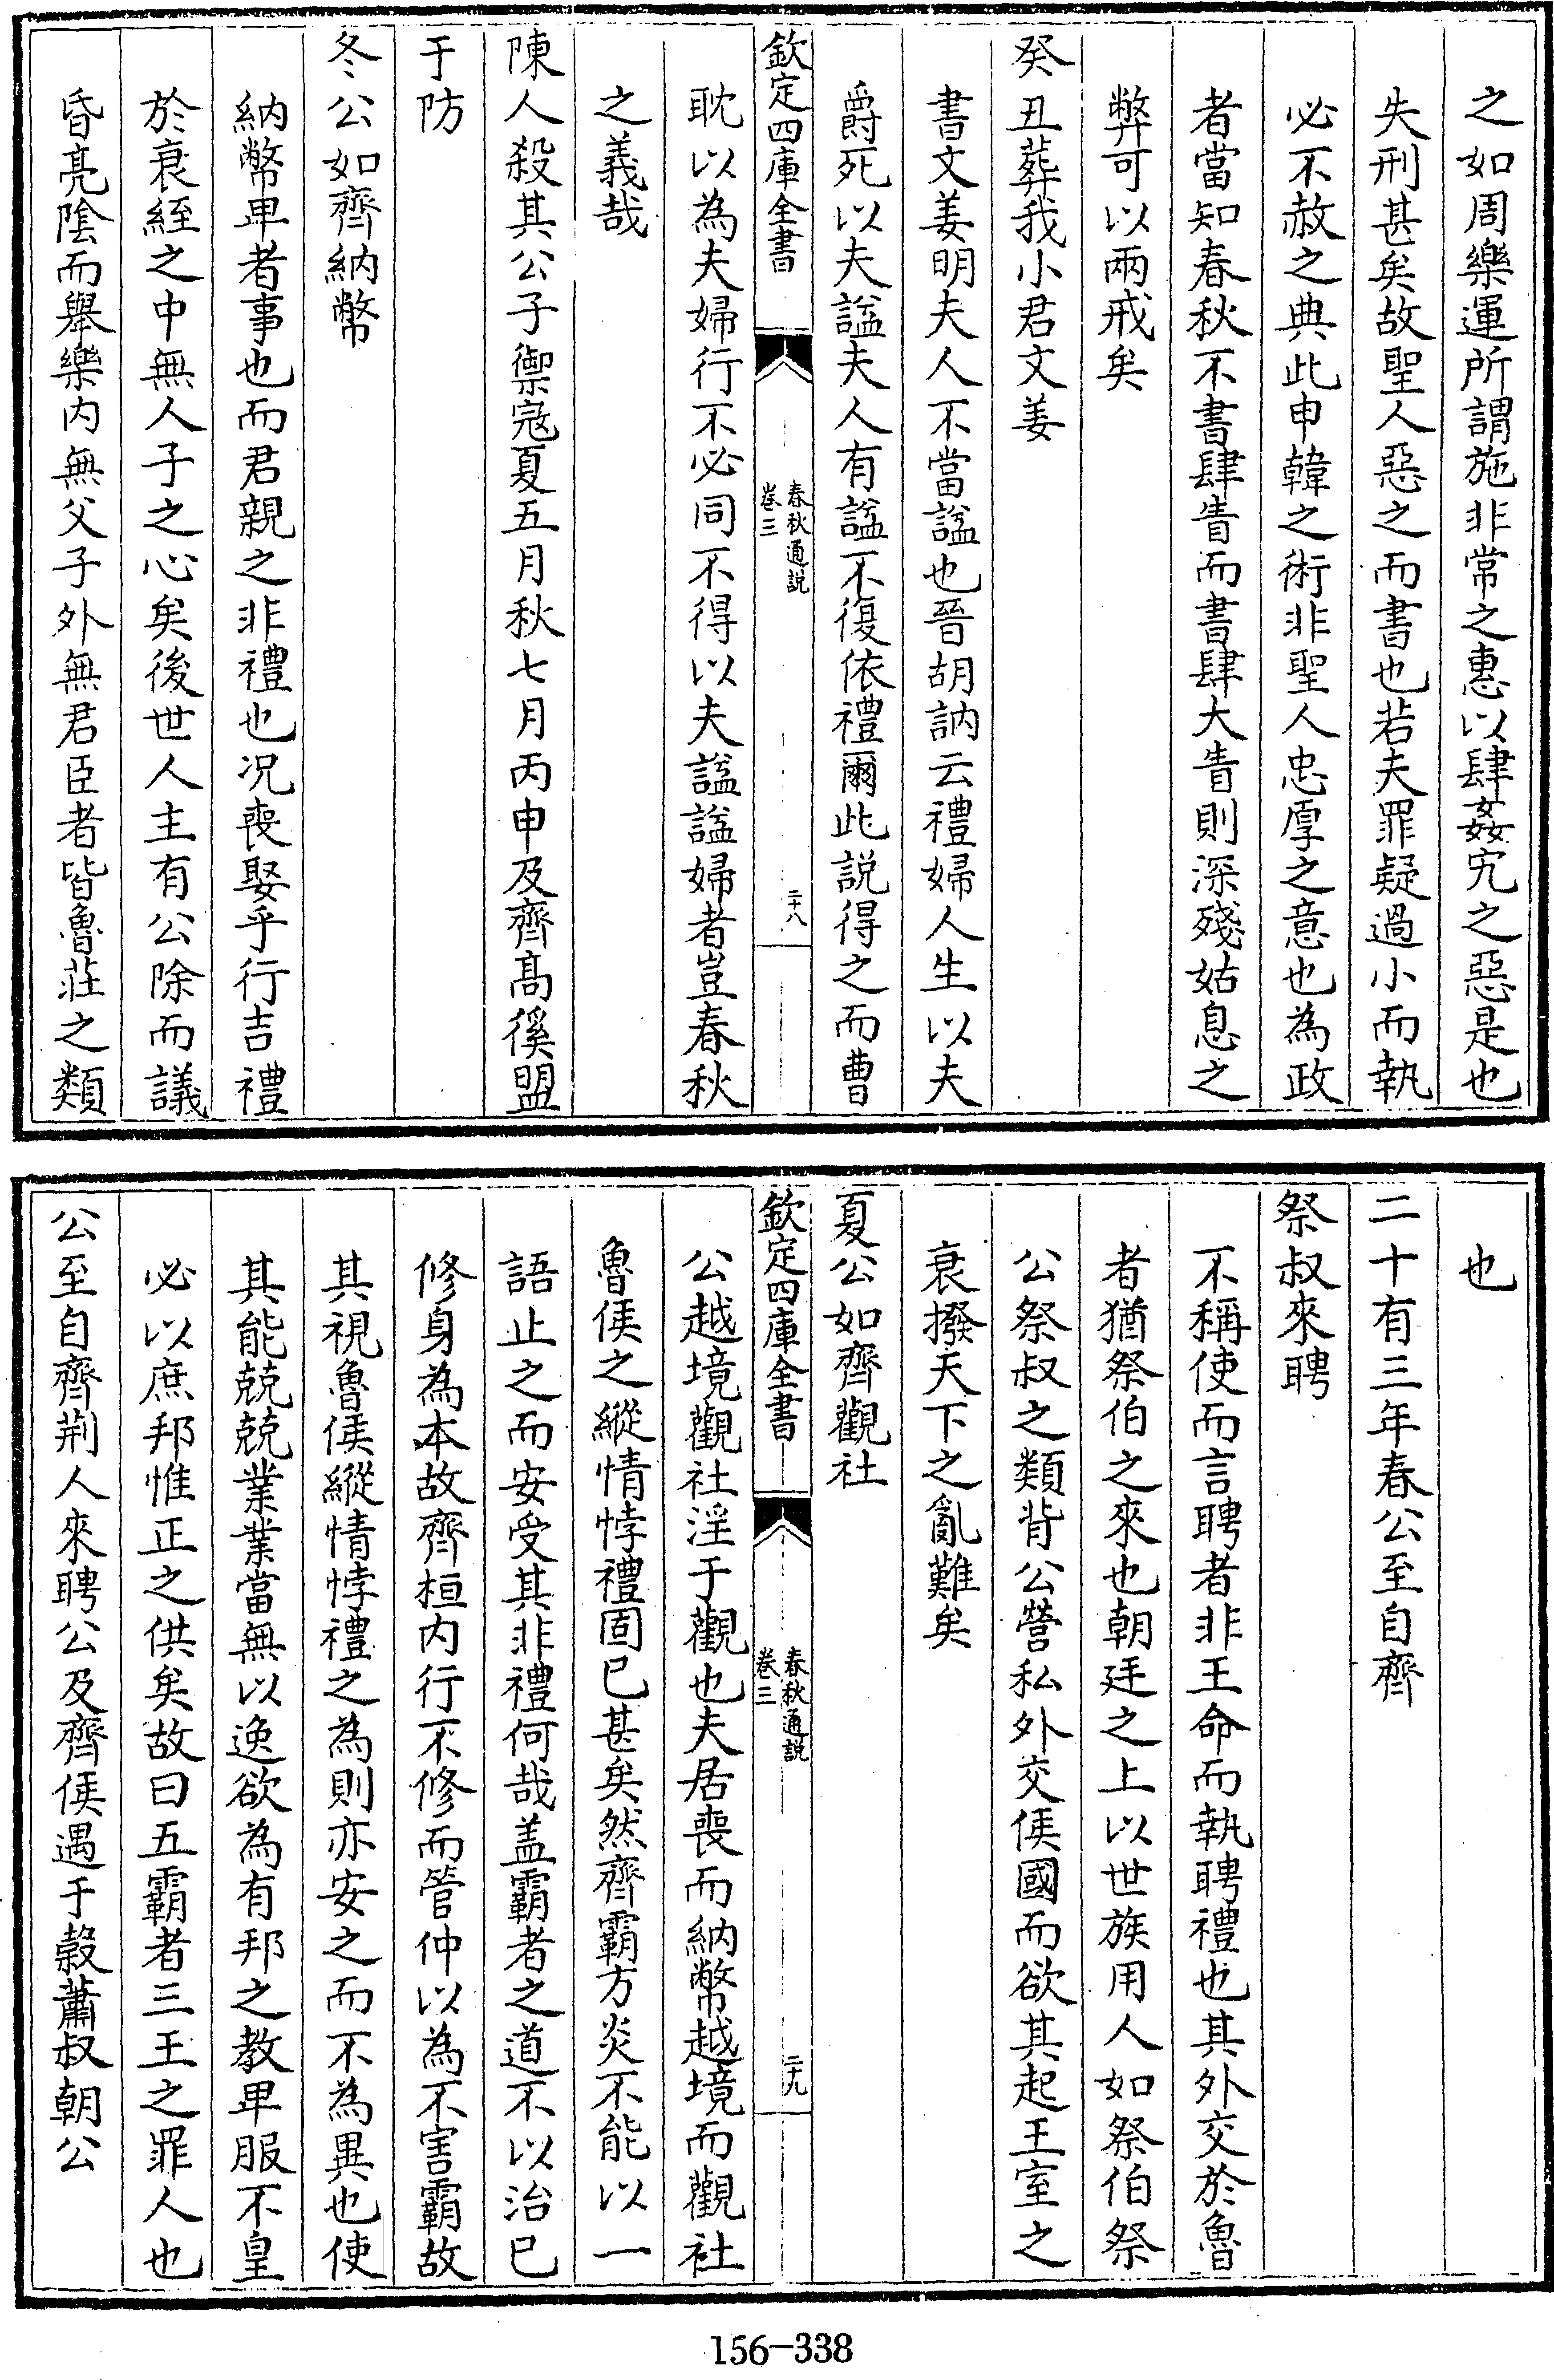 之如周樂運所謂施非常之惠以肆姦宄之惡是也
失刑甚矣故聖人惡之而書也若夫罪疑過小而執
必不赦之典此申韓之術非聖人忠厚之意也為政
者當知春秋不書肆眚而書肆大眚則深殘姑息之
弊可以兩戒矣
癸丑葬我小君文姜
書文姜明夫人不當諡也晉胡訥云禮婦人生以夫
爵死以夫諡夫人有諡不復依禮爾此説得之而曹
欽定四庫全書
春秋通説
卷三
二十八
耽以為夫婦行不必同不得以夫諡諡婦者豈春秋
之義哉
陳人殺其公子禦寇夏五月秋七月丙申及齊髙傒盟
于防
冬公如齊納幣
納幣卑者事也而君親之非禮也况喪娶乎行吉禮
於衰絰之中無人子之心矣後世人主有公除而議
昏亮陰而舉樂内無父子外無君臣者皆魯莊之類
也
二十有三年春公至自齊
祭叔來聘
不稱使而言聘者非王命而執聘禮也其外交於魯
者猶祭伯之來也朝廷之上以世族用人如祭伯祭
公祭叔之類背公營私外交侯國而欲其起王室之
衰撥天下之亂難矣
夏公如齊觀社
欽定四庫全書
春秋通説
卷三
二十九
公越境觀社淫于觀也夫居喪而納幣越境而觀社
魯侯之縱情悖禮固已甚矣然齊霸方炎不能以一
語止之而安受其非禮何哉盖霸者之道不以治已
修身為本故齊桓内行不修而管仲以為不害霸故
其視魯侯縱情悖禮之為則亦安之而不為異也使
其能兢兢業業當無以逸欲為有邦之教卑服不皇
必以庶邦惟正之供矣故曰五霸者三王之罪人也
公至自齊荆人來聘公及齊侯遇于穀蕭叔朝公
156-338